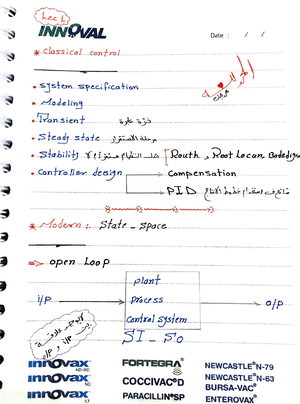 Lec 1
INNOVAL
Date : / /
* Classical control
• system specification
• Modeling
• Transient فترة عابرة
• Steady state مرحلة الاستقرار
• Stability [ Routh , Root Locan, Bodediag
• Controller design → Compensation
→ PID
* Modern: State-space
⇒ open Loop
i/P → plant process control system → o/P
SI - SO
innovax ND-IBD
innovax
innovax ILT
FORTEGRA
COCCIVAC D
PARACILLIN SP
NEWCASTLE N-79
NEWCASTLE N-63
BURSA-VAC
ENTEROVAX